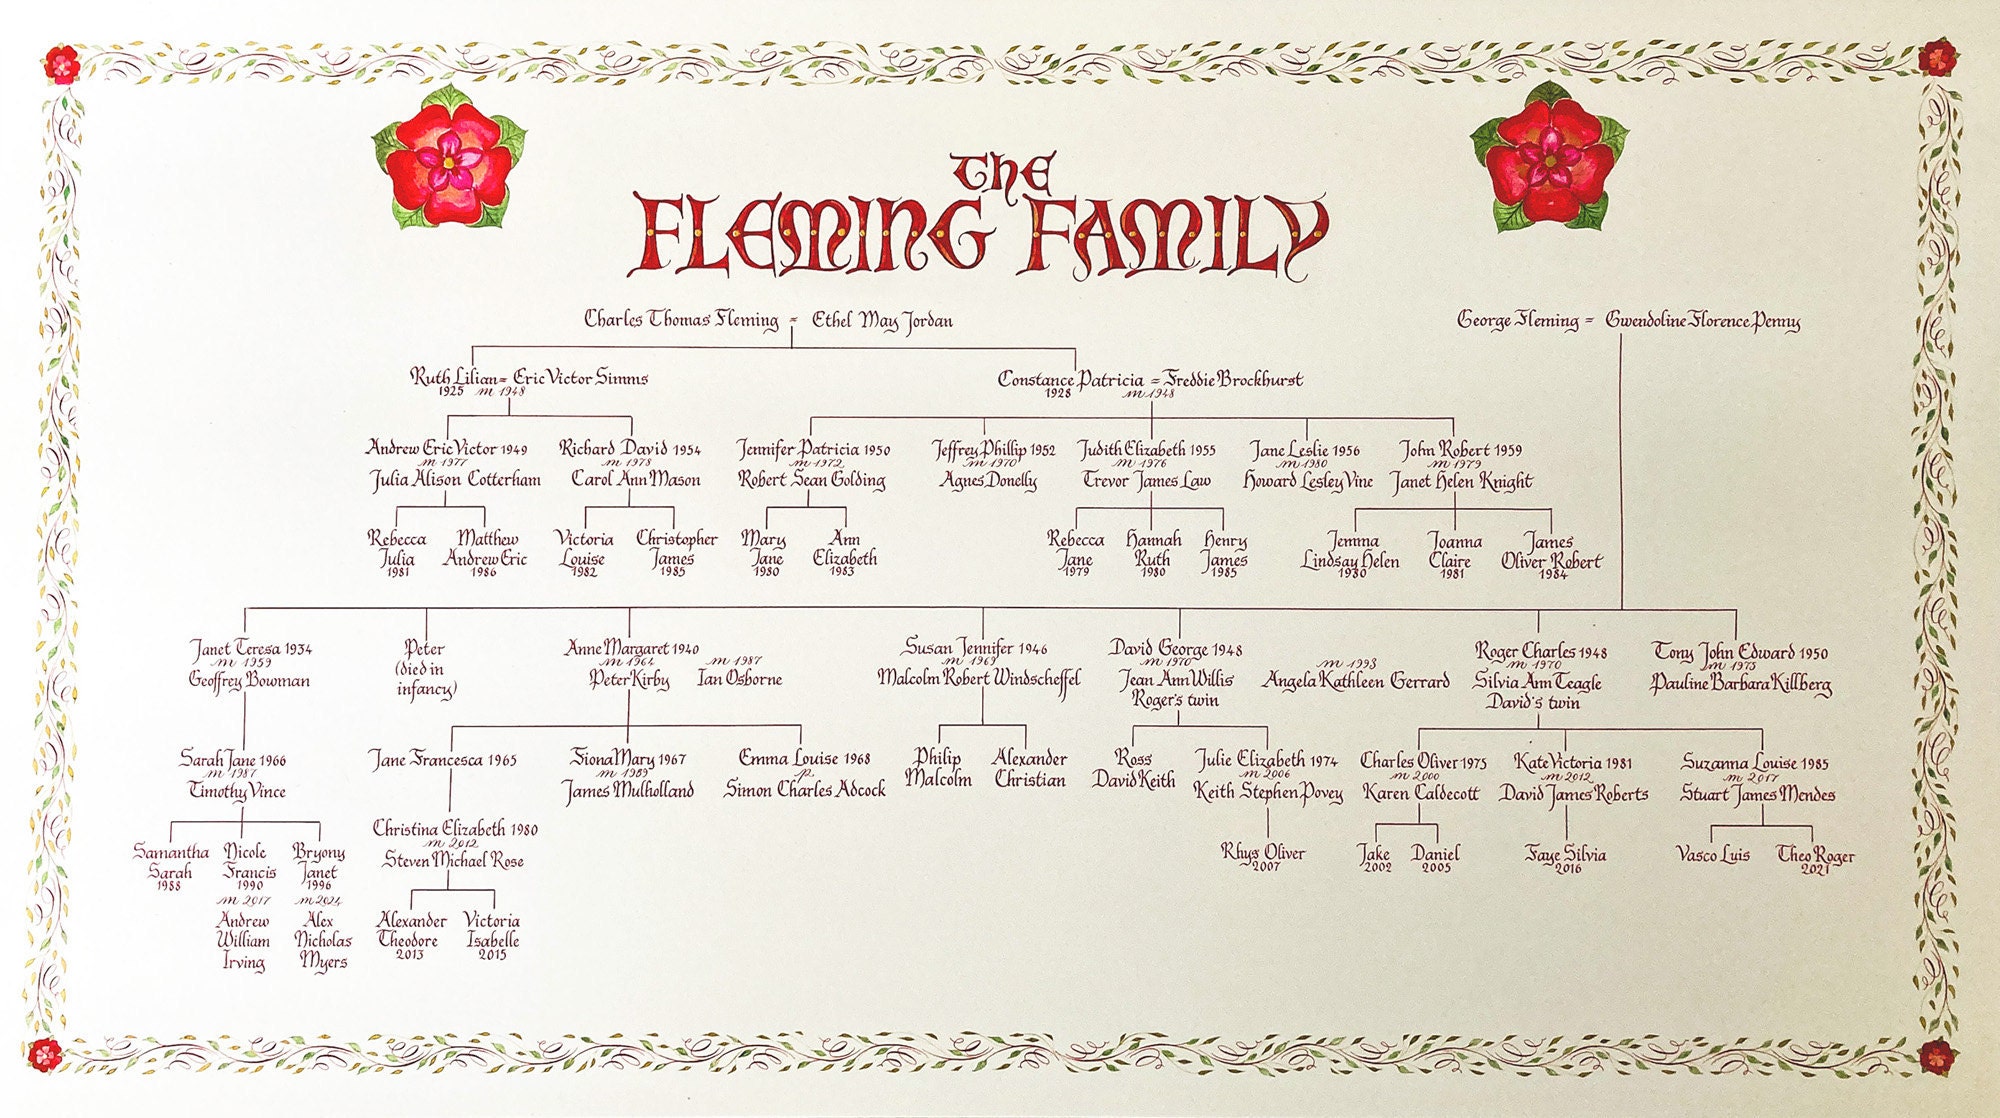 THE
FLEMING FAMILY
Charles Thomas Fleming = Ethel May Jordan
George Fleming = Gwendoline Florence Penny
Ruth Lilian = Eric Victor Simms
1925 m 1948
Constance Patricia = Freddie Brockhurst
1928 m 1948
Andrew Eric Victor 1949
m 1977
Julia Alison Cotterham
Richard David 1954
m 1978
Carol Ann Mason
Jennifer Patricia 1950
m 1972
Robert Sean Golding
Jeffrey Phillip 1952
m 1970
Agnes Donelly
Judith Elizabeth 1955
m 1976
Trevor James Law
Jane Leslie 1956
m 1980
Howard Lesley Vine
John Robert 1959
m 1979
Janet Helen Knight
Rebecca
Julia
1981
Matthew
Andrew Eric
1986
Victoria
Louise
1982
Christopher
James
1985
Mary
Jane
1980
Ann
Elizabeth
1983
Rebecca
Jane
1979
Hannah
Ruth
1980
Henry
James
1985
Jemma
Lindsay Helen
1980
Joanna
Claire
1981
James
Oliver Robert
1984
Janet Teresa 1934
m 1959
Geoffrey Bowman
Peter
(died in
infancy)
Anne Margaret 1940
m 1964
Peter Kirby
m 1987
Ian Osborne
Susan Jennifer 1946
m 1969
Malcolm Robert Windscheffel
David George 1948
m 1970
Jean Ann Willis
Roger's twin
m 1993
Angela Kathleen Gerrard
Roger Charles 1948
m 1970
Silvia Ann Teagle
David's twin
Tony John Edward 1950
m 1973
Pauline Barbara Killberg
Sarah Jane 1966
m 1987
Timothy Vince
Jane Francesca 1965
Fiona Mary 1967
m 1989
James Mulholland
Emma Louise 1968
p
Simon Charles Adcock
Philip
Malcolm
Alexander
Christian
Ross
David Keith
Julie Elizabeth 1974
m 2006
Keith Stephen Povey
Charles Oliver 1975
m 2000
Karen Caldecott
Kate Victoria 1981
m 2012
David James Roberts
Suzanna Louise 1985
m 2017
Stuart James Mendes
Christina Elizabeth 1980
m 2012
Steven Michael Rose
Samantha
Sarah
1988
Nicole
Francis
1990
m 2017
Andrew
William
Irving
Bryony
Janet
1996
m 2024
Alex
Nicholas
Myers
Alexander
Theodore
2013
Victoria
Isabelle
2015
Rhys Oliver
2007
Jake
2002
Daniel
2005
Faye Silvia
2016
Vasco Luis
Theo Roger
2021